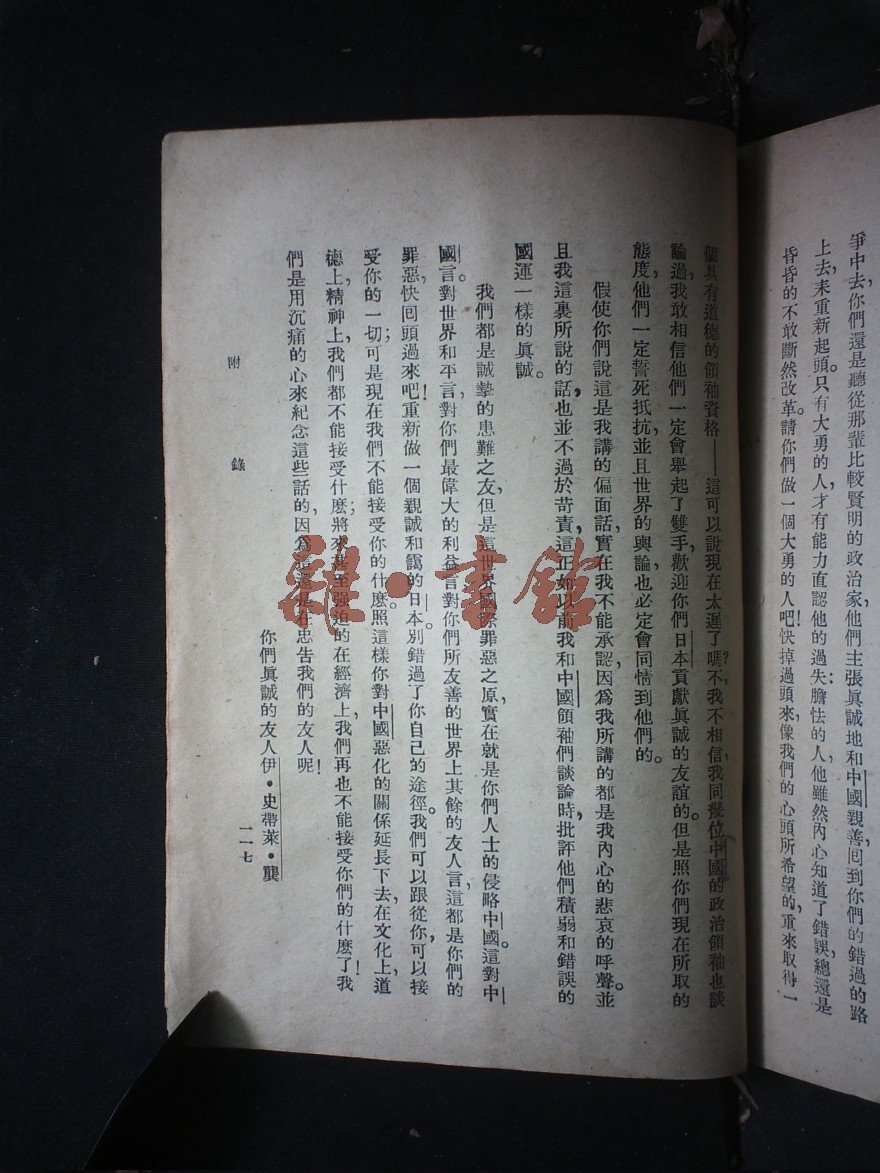 爭中去，你們還是聽從那輩比較賢明的政治家，他們主張眞誠地和中國親善，囘到你們的錯過的路
上去，來重新起頭。只有大勇的人，才有能力直認他的過失；膽怯的人，他雖然內心知道了錯誤，總還是
昏昏的不敢斷然改革。請你們做一個大勇的人吧！快掉過頭來，像我們的心頭所希望的，重來取得一
個具有道德的領袖資格——這可以說現在太遲了嗎？不，我不相信，我同幾位中國的政治領袖也談
論過，我敢相信他們一定會舉起了雙手，歡迎你們日本貢獻眞誠的友誼的。但是照你們現在所取的
態度，他們一定誓死抵抗，並且世界的輿論也必定會同情到他們的。
假使你們說這是我講的偏面話，實在我不能承認，因爲我所講的都是我內心的悲哀的呼聲。並
且我這裏所說的話，也並不過於苛責，這正如以前我和中國領袖們談論時，批評他們積弱和錯誤的
國運一樣的眞誠。
我們都是誠摯的患難之友，但是這世界國際罪惡之原，實在就是你們人士的侵略中國。這對中
國言，對世界和平言，對你們最偉大的利益言，對你們所友善的世界上其餘的友人言，這都是你們的
罪惡，快囘頭過來吧！重新做一個親誠和藹的日本，別錯過了你自己的途徑。我們可以跟從你，可以接
受你的一切；可是現在我們不能接受你的什麽。照這樣你對中國惡化的關係延長下去，在文化上，道
德上，精神上，我們都不能接受什麽；將來甚至强迫的在經濟上，我們再也不能接受你們的什麽了！我
們是用沉痛的心來紀念這些話的，因爲還是在忠告我們的友人呢！
你們眞誠的友人伊·史帶萊·龔
附錄
一一七
雜·書館